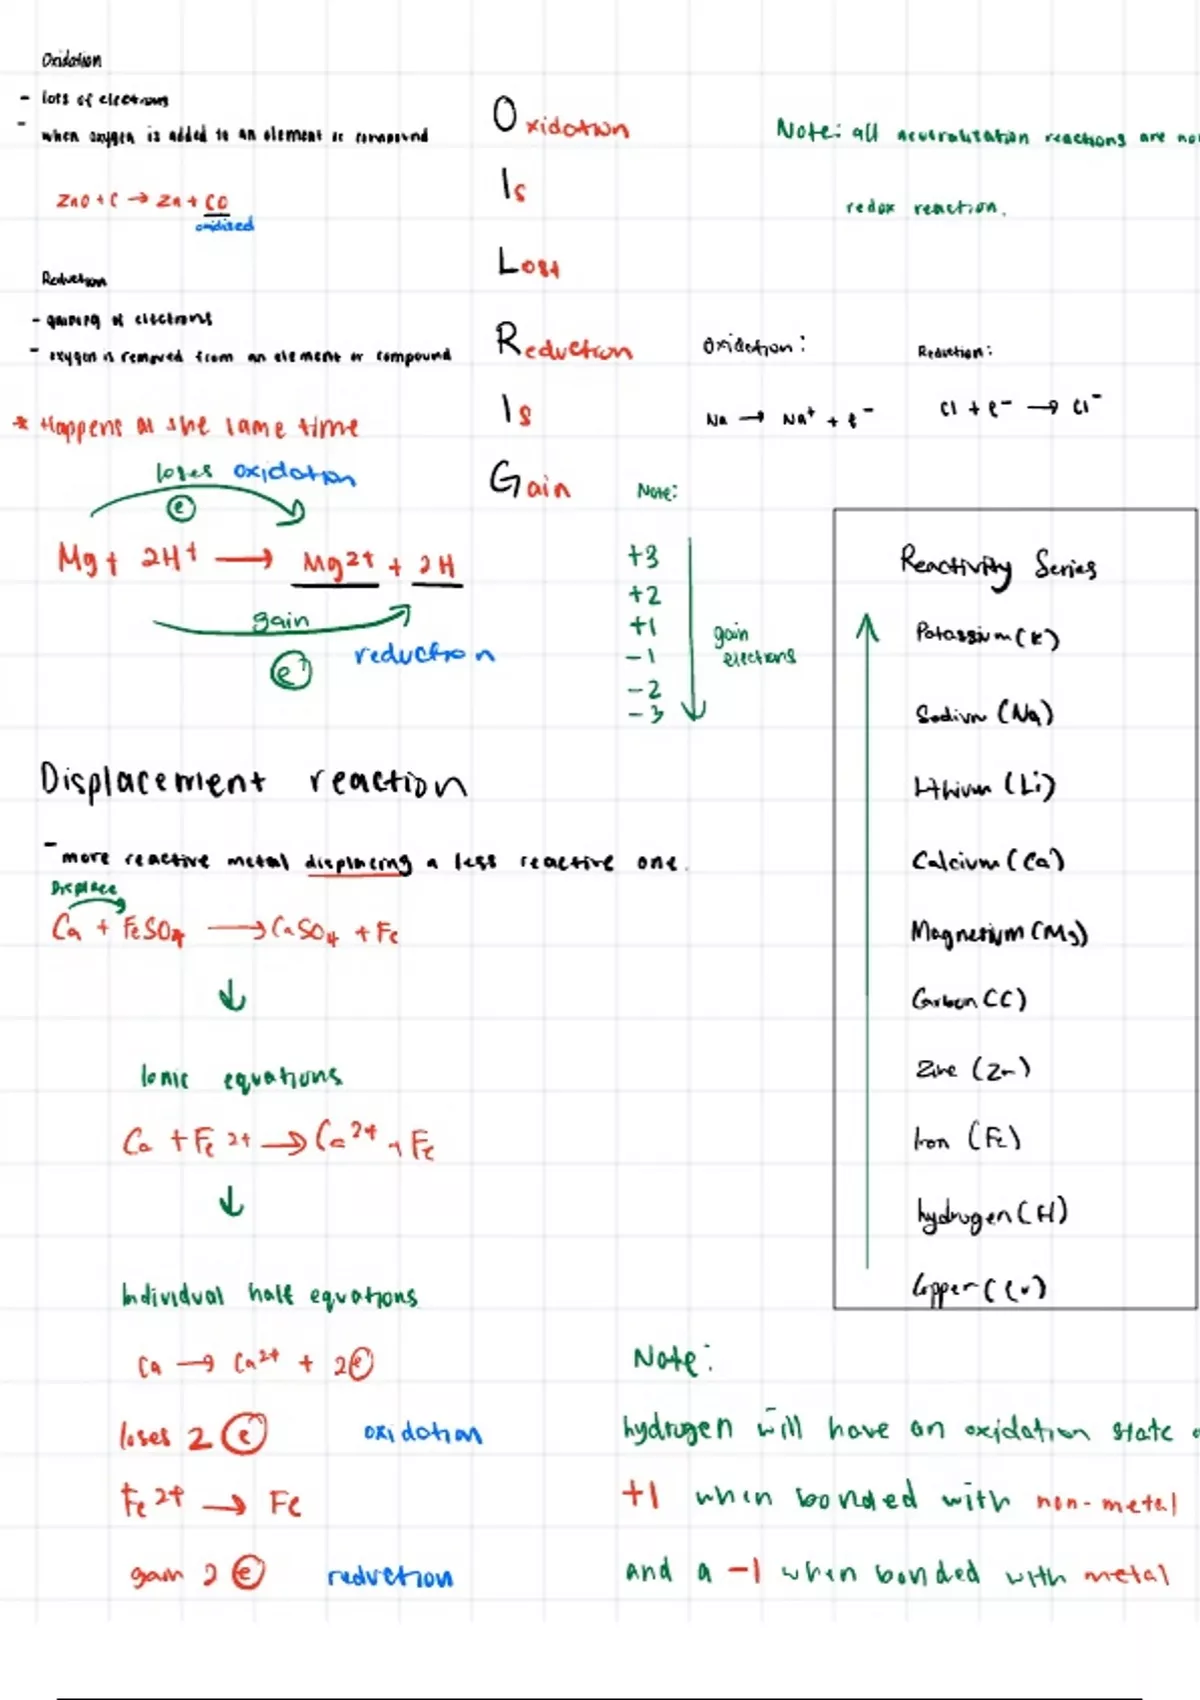 Oxidation
- lots of electrons
- when oxygen is added to an element or compound
ZnO + C → Zn + CO
oxidized
Reduction
- gaining of electrons
- oxygen is removed from an element or compound
* Happens at the same time
loses oxidation
e
Mg + 2H+ → Mg2+ + 2H
gain
e
reduction
Oxidation
Is
Lost
Reduction
Is
Gain
Note: all neutralization reactions are no
redox reaction.
Oxidation:
Na → Na+ + e-
Reduction:
Cl + e- → Cl-
Note:
+3
+2
+1
-1
-2
-3
gain
electrons
Reactivity Series
Potassium (K)
Sodium (Na)
Lithium (Li)
Calcium (Ca)
Magnesium (Mg)
Carbon (C)
Zinc (Zn)
Iron (Fe)
hydrogen (H)
Copper (Cu)
Displacement reaction
- more reactive metal displacing a less reactive one.
Displace
Ca + FeSO4 → CaSO4 + Fe
↓
Ionic equations
Ca + Fe2+ → Ca2+ + Fe
↓
Individual half equations
Ca → Ca2+ + 2e
loses 2 e- oxidation
Fe2+ → Fe
gain 2 e reduction
Note:
hydrogen will have an oxidation state
+1 when bonded with non-metal
and a -1 when bonded with metal